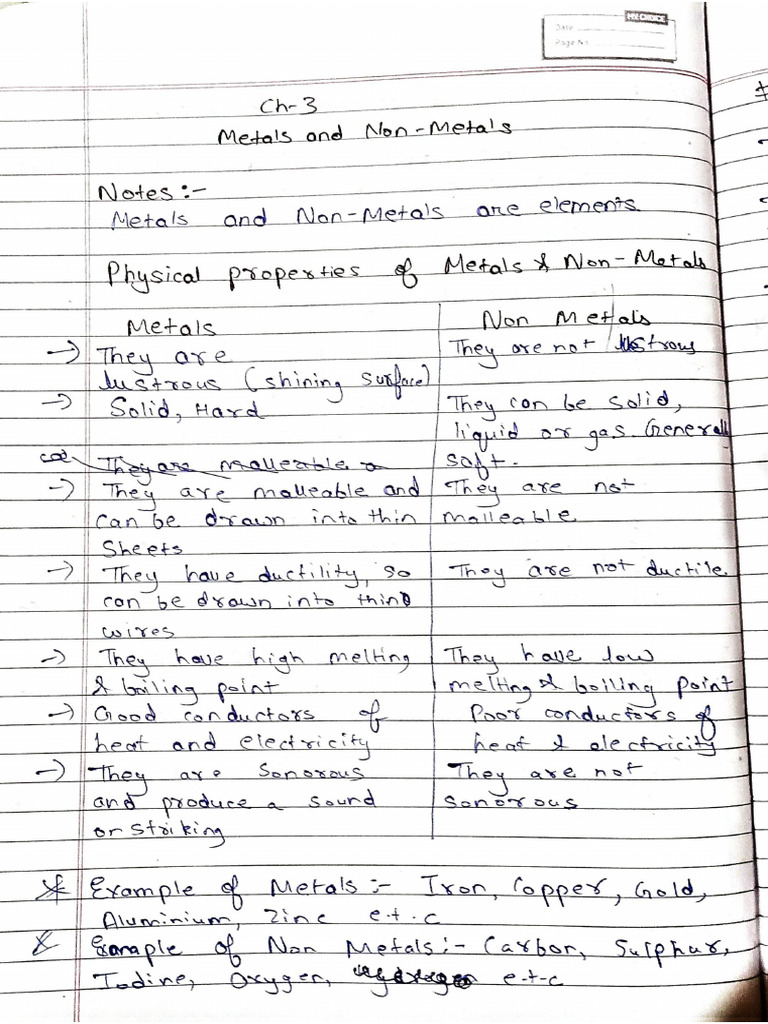 MY CHOICE
Date
Page No.
Ch-3
Metals and Non-Metals
Notes:-
Metals and Non-Metals are elements.
Physical properties of Metals & Non-Metals
Metals
Non Metals
→ They are
lustrous (shining surface)
They are not lustrous
→ Solid, Hard
They can be solid,
liquid or gas. Generally
soft.
They are malleable
→ They are malleable and
can be drawn into thin
Sheets
They are not
malleable
→ They have ductility, so
can be drawn into thin
wires
They are not ductile.
→ They have high melting
& boiling point
They have low
melting & boiling point
→ Good conductors of
heat and electricity
Poor conductors of
heat & electricity
→ They are Sonorous
and produce a sound
or striking
They are not
sonorous
* Example of Metals:- Iron, Copper, Gold,
Aluminium, Zinc e.t.c
* Example of Non Metals:- Carbon, Sulphur,
Iodine, Oxygen, e.t.c